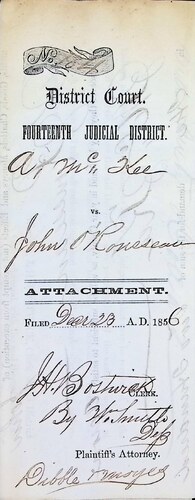 No. 94
District Court.
FOURTEENTH JUDICIAL DISTRICT.
A. McKee
vs.
John O Rouseau
ATTACHMENT.
FILED Decr 23 A. D. 1856
J H Bostwick
CLERK.
By Wm Smith
Dep
Plaintiff's Attorney.
Dibble